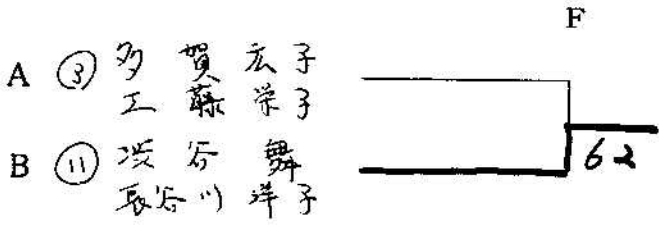 F
A ③ 多賀宏子
工藤栄子
B ⑪ 渋谷舞
長谷川洋子
62